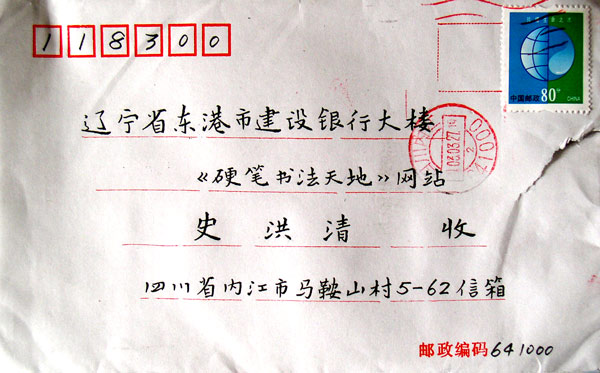 118300
中国邮政 80分 CHINA
辽宁省东港市建设银行大楼
《硬笔书法天地》网站
史洪清 收
四川省内江市马鞍山村5-62信箱
邮政编码641000